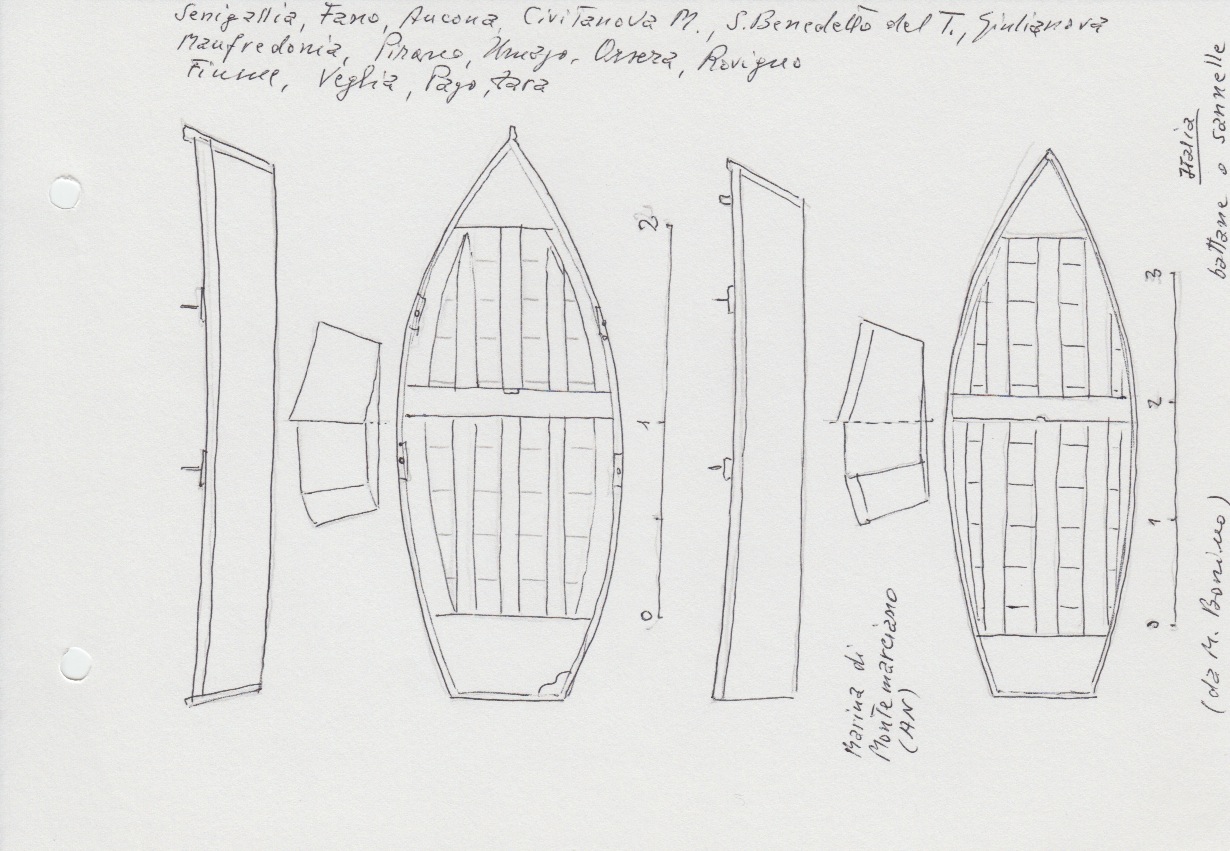 Senigallia, Fano, Ancona, Civitanova M., S. Benedetto del T., Giulianova
Manfredonia, Pirano, Umago, Orsera, Rovigno
Fiume, Veglia, Pago, Zara
Italia
battane o sannelle
(da M. Bonino)
2
1
0
3
2
1
0
Marina di
Montemarciano
(AN)